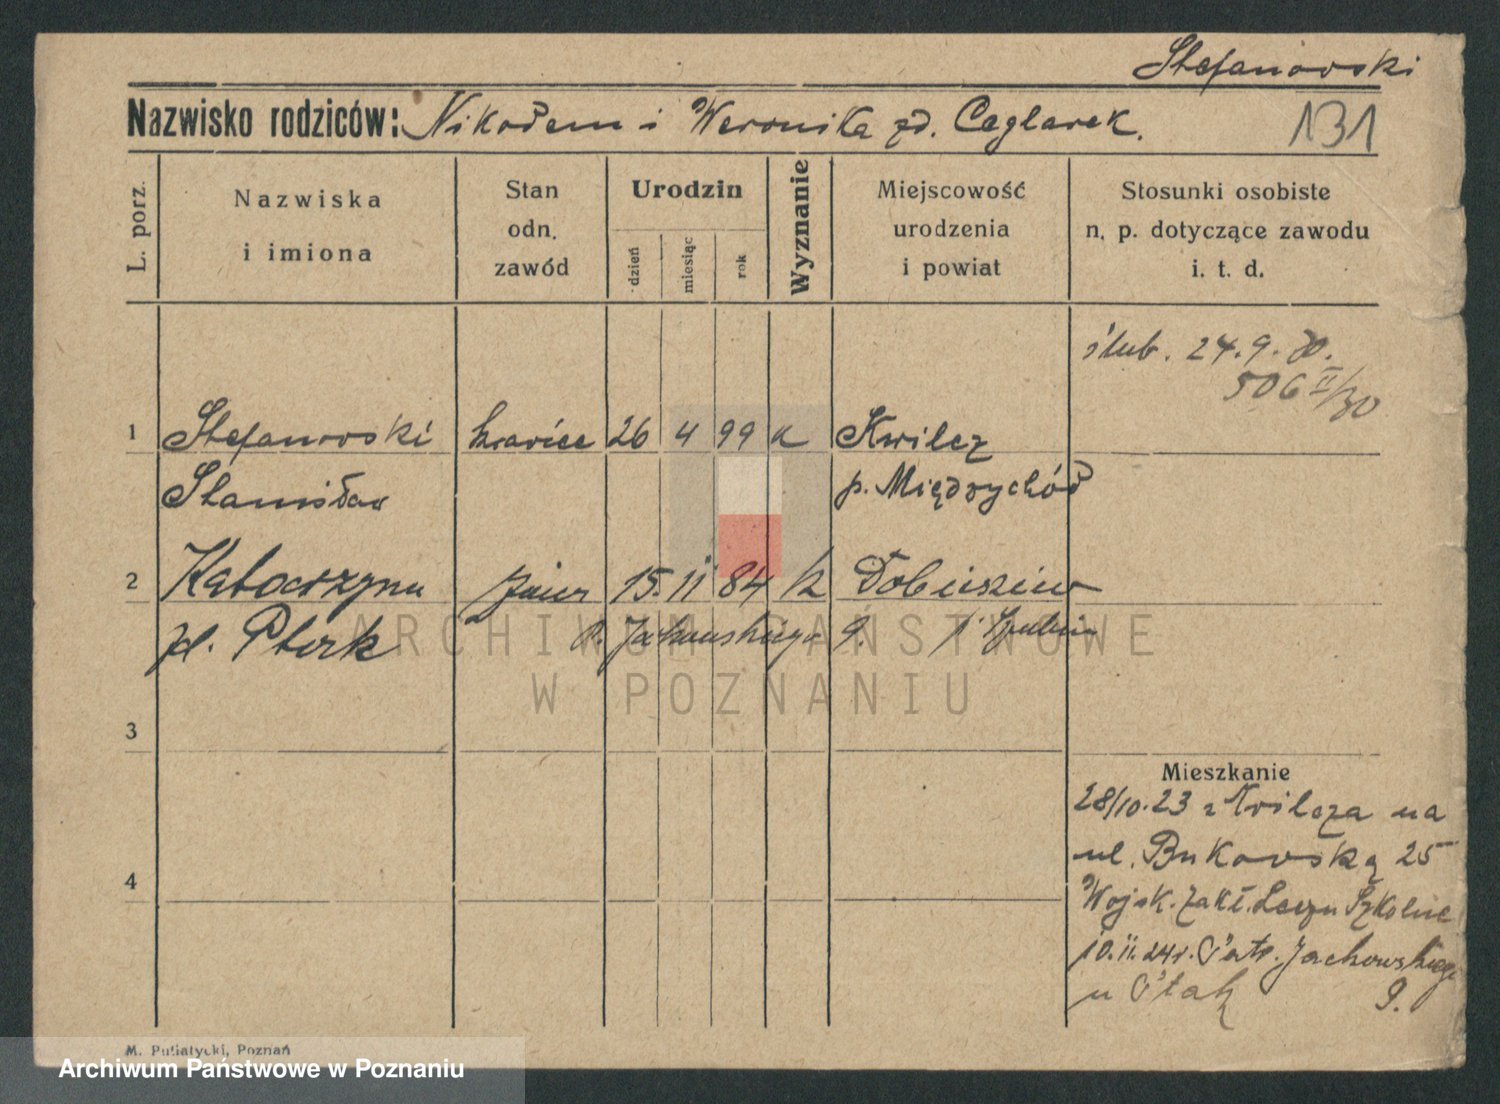 Stefanowski
Nazwisko rodziców: Nikodem i Weronika zd. Ceglarek.
131
L. porz.
Nazwiska
i imiona
Stan
odn.
zawód
Urodzin
dzień
miesiąc
rok
Wyznanie
Miejscowość
urodzenia
i powiat
Stosunki osobiste
n. p. dotyczące zawodu
i. t. d.
ślub. 24.9.30.
506 II/30
1 Stefanowski krawiec 26 4 99 k Kwilcz
Stanisław p. Międzychód
2 Katarzyna 15. 11 84 k
zd. Jackowskiego 9.
3
4
Mieszkanie
28/10.23 z Kwilcza na
ul. Bukowską 25
Wojsk. Zakł. Leczn Szkolne
10.11.24r. Jackowskiego
u 9.
M. Putiatycki, Poznań
ARCHIWUM PAŃSTWOWE
W POZNANIU
Archiwum Państwowe w Poznaniu